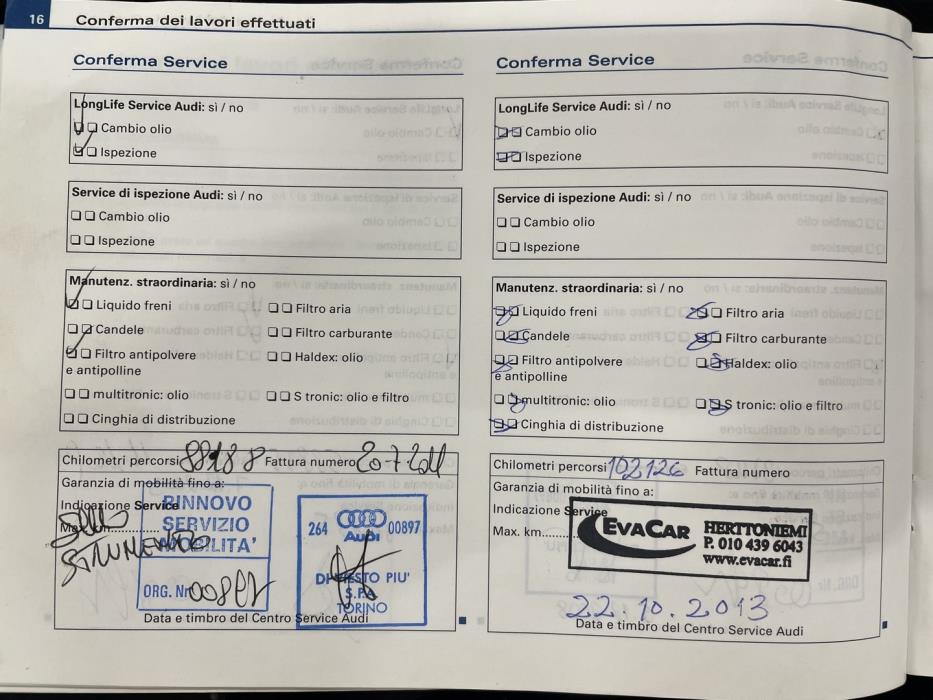 16 Conferma dei lavori effettuati
Conferma Service
LongLife Service Audi: sì / no
Cambio olio
Ispezione
Service di ispezione Audi: sì / no
Cambio olio
Ispezione
Manutenz. straordinaria: sì / no
Liquido freni Filtro aria
Candele Filtro carburante
Filtro antipolvere Haldex: olio
e antipolline
multitronic: olio S tronic: olio e filtro
Cinghia di distribuzione
Chilometri percorsi 88188 Fattura numero 20-7-2011
Garanzia di mobilità fino a:
Indicazione Service
RINNOVO
SERVIZIO
MOBILITA'
STRUMENTO
ORG. Nr 00897
264 Audi 00897
DI PIU'
S.P.A.
TORINO
Data e timbro del Centro Service Audi
Conferma Service
LongLife Service Audi: sì / no
Cambio olio
Ispezione
Service di ispezione Audi: sì / no
Cambio olio
Ispezione
Manutenz. straordinaria: sì / no
Liquido freni Filtro aria
Candele Filtro carburante
Filtro antipolvere Haldex: olio
e antipolline
multitronic: olio S tronic: olio e filtro
Cinghia di distribuzione
Chilometri percorsi 102126 Fattura numero
Garanzia di mobilità fino a:
Indicazione Service
Max. km..........
EVACAR HERTTONIEMI
P. 010 439 6043
www.evacar.fi
22.10.2013
Data e timbro del Centro Service Audi